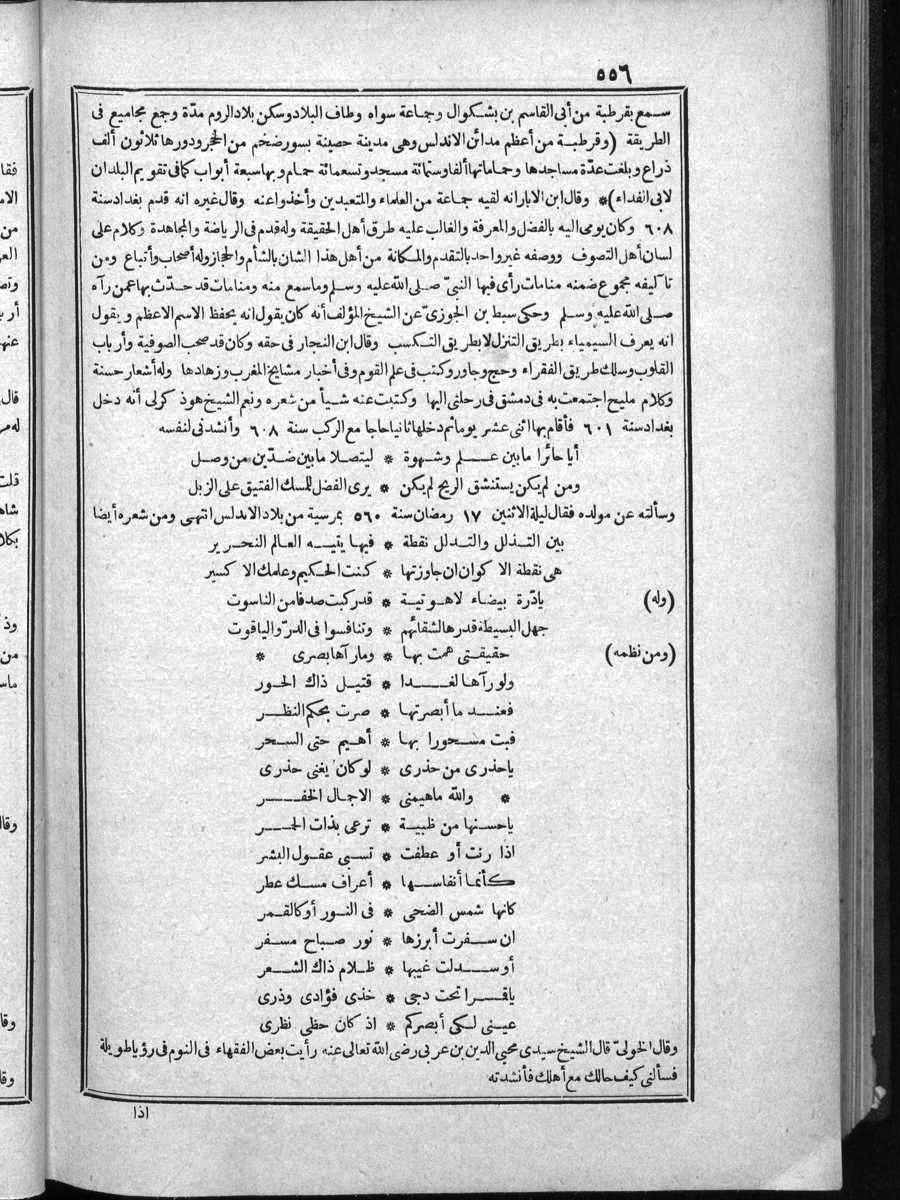 ٥٥٦
سمع بقرطبة من أبى القاسم بن بشكوال وجماعة سواه وطاف البلاد وسكن بلاد الروم مدّة وجمع مجاميع فى
الطريقة (وقرطبة من أعظم مدائن الاندلس وهى مدينة حصينة بسور ضخم من الحجر ودورها ثلاثون ألف
ذراع وبلغت عدّة مساجدها وحماماتها ألفا وستمائة مسجد وتسعمائة حمام وبها سبعة أبواب كما فى تقويم البلدان
لابى الفداء)* وقال ابن الابار انه لقيه جماعة من العلماء والمتعبدين وأخذوا عنه وقال غيره انه قدم بغداد سنة
٦٠٨ وكان يومى اليه بالفضل والمعرفة والغالب عليه طرق أهل الحقيقة وله قدم فى الرياضة والمجاهدة وكلام على
لسان أهل التصوف ووصفه غير واحد بالتقدم والمكانة من أهل هذا الشان بالشأم والحجاز وله أصحاب وأتباع ومن
تآليفه مجموع ضمنه منامات رأى فيها النبىّ صلى الله عليه وسلم وما سمع منه ومنامات قد حدّث بها عمن رآه
صلى الله عليه وسلم وحكى سبط بن الجوزىّ عن الشيخ المؤلف أنه كان يقول انه يحفظ الاسم الاعظم ويقول
انه يعرف السيمياء بطريق التنزل لا بطريق التكسب وقال ابن النجار فى حقه وكان قد صحب الصوفية وأرباب
القلوب وسلك طريق الفقراء وحج وجاور وكتب فى علم القوم وفى أخبار مشايخ المغرب وزهادها وله أشعار حسنة
وكلام مليح اجتمعت به فى دمشق فى رحلتى اليها وكتبت عنه شيأ من شعره ونعم الشيخ هو ذكر لى أنه دخل
بغداد سنة ٦٠١ فأقام بها اثنى عشر يوما ثم دخلها ثانيا حاجا مع الركب سنة ٦٠٨ وأنشدنى لنفسه
أيا حائرا ما بين علم وشهوة * ليتصلا ما بين ضدّين من وصل
ومن لم يكن يستنشق الريح لم يكن * يرى الفضل للمسك الفتيق على الزبل
وسألته عن مولده فقال ليلة الاثنين ١٧ رمضان سنة ٥٦٠ بمرسية من بلاد الاندلس انتهى ومن شعره أيضا
بين التذلل والتدلل نقطة * فيها يتيه العالم النحرير
هى نقطة الاكوان ان جاوزتها * كنت الحكيم وعلمك الاكسير
(وله) يا درّة بيضاء لاهوتية * قد ركبت صدفا من الناسوت
جهل البسيطة قدرها لشقائهم * وتنافسوا فى الدرّ والياقوت
(ومن نظمه) حقيقتى همت بها * وما رآها بصرى *
ولو رآها لغدا * قتيل ذاك الحور
فعند ما أبصرتها * صرت بحكم النظر
فبت مسحورا بها * أهيم حتى السحر
يا حذرى من حذرى * لو كان يغنى حذرى
* والله ما هيمنى * الا جمال الخفر
يا حسنها من ظبية * ترعى بذات الخمر
اذا رنت أو عطفت * تسبى عقول البشر
كأنما أنفاسها * أعراف مسك عطر
كانها شمس الضحى * فى النور أو كالقمر
ان سفرت أبرزها * نور صباح مسفر
أو سدلت غيبها * ظلام ذاك الشعر
يا قمرا تحت دجى * خذى فؤادى وذرى
عينى لكى أبصركم * اذ كان حظى نظرى
وقال الخولىّ قال الشيخ سيدى محيى الدين بن عربى رضى الله تعالى عنه رأيت بعض الفقهاء فى النوم فى رؤيا طويلة
فسألنى كيف حالك مع أهلك فأنشدته
اذا